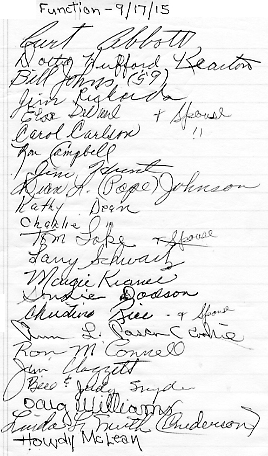 Function - 9/17/15
Curt Abbott
Dotty Hufford Keaton
Bill Johns (59)
Jim Richards
& Spouse
Carol Carlson "
Ron Campbell
Jim
Dian A. (Pope) Johnson
Kathy Deen
Charlie "
Tom Lake & Spouse
Larry Schwartz
Margie Kramer
Susie Dodson
Rice & Spouse
Jim L.
Ron McConnell
Jim
Bill & Judy Snyder
Doug Williams
Linda Smith (Anderson)
Howdy McLean